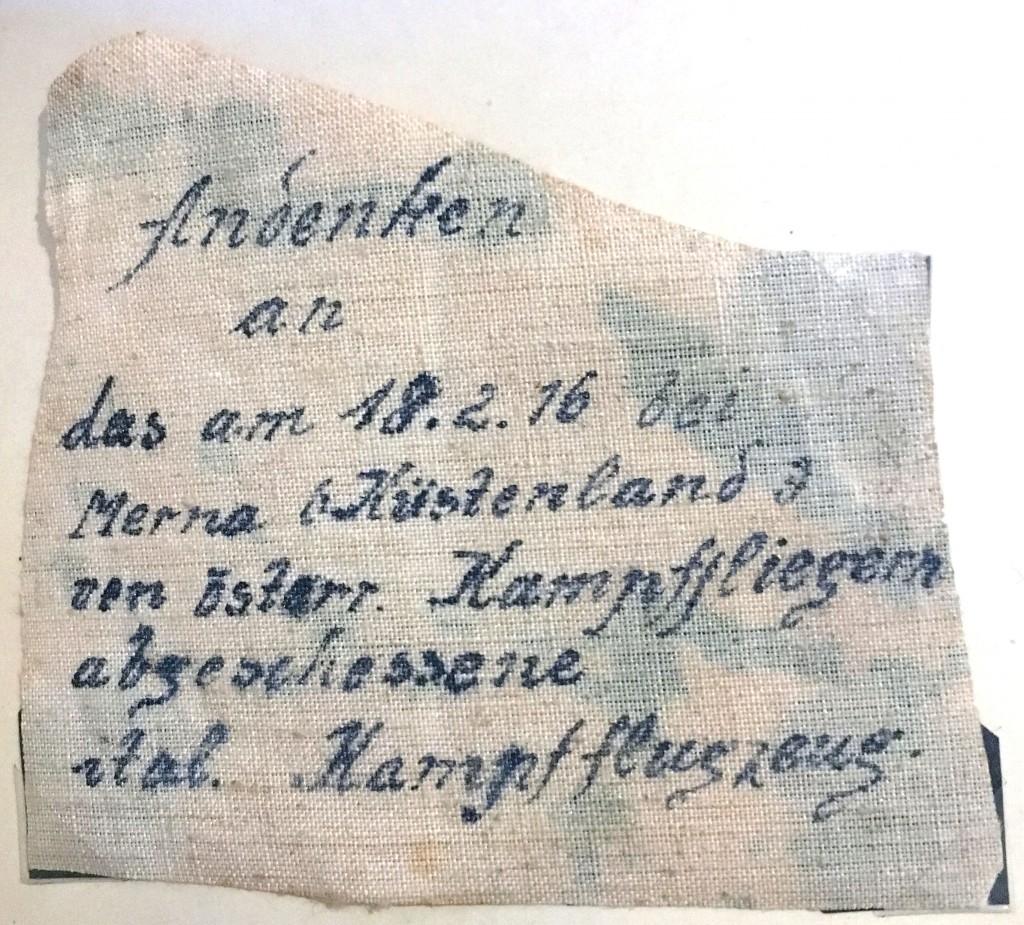 Andenken
an
das am 18.2.16 bei
Merna (Küstenland)
von österr. Kampffliegern
abgeschossene
ital. Kampfflugzeug.